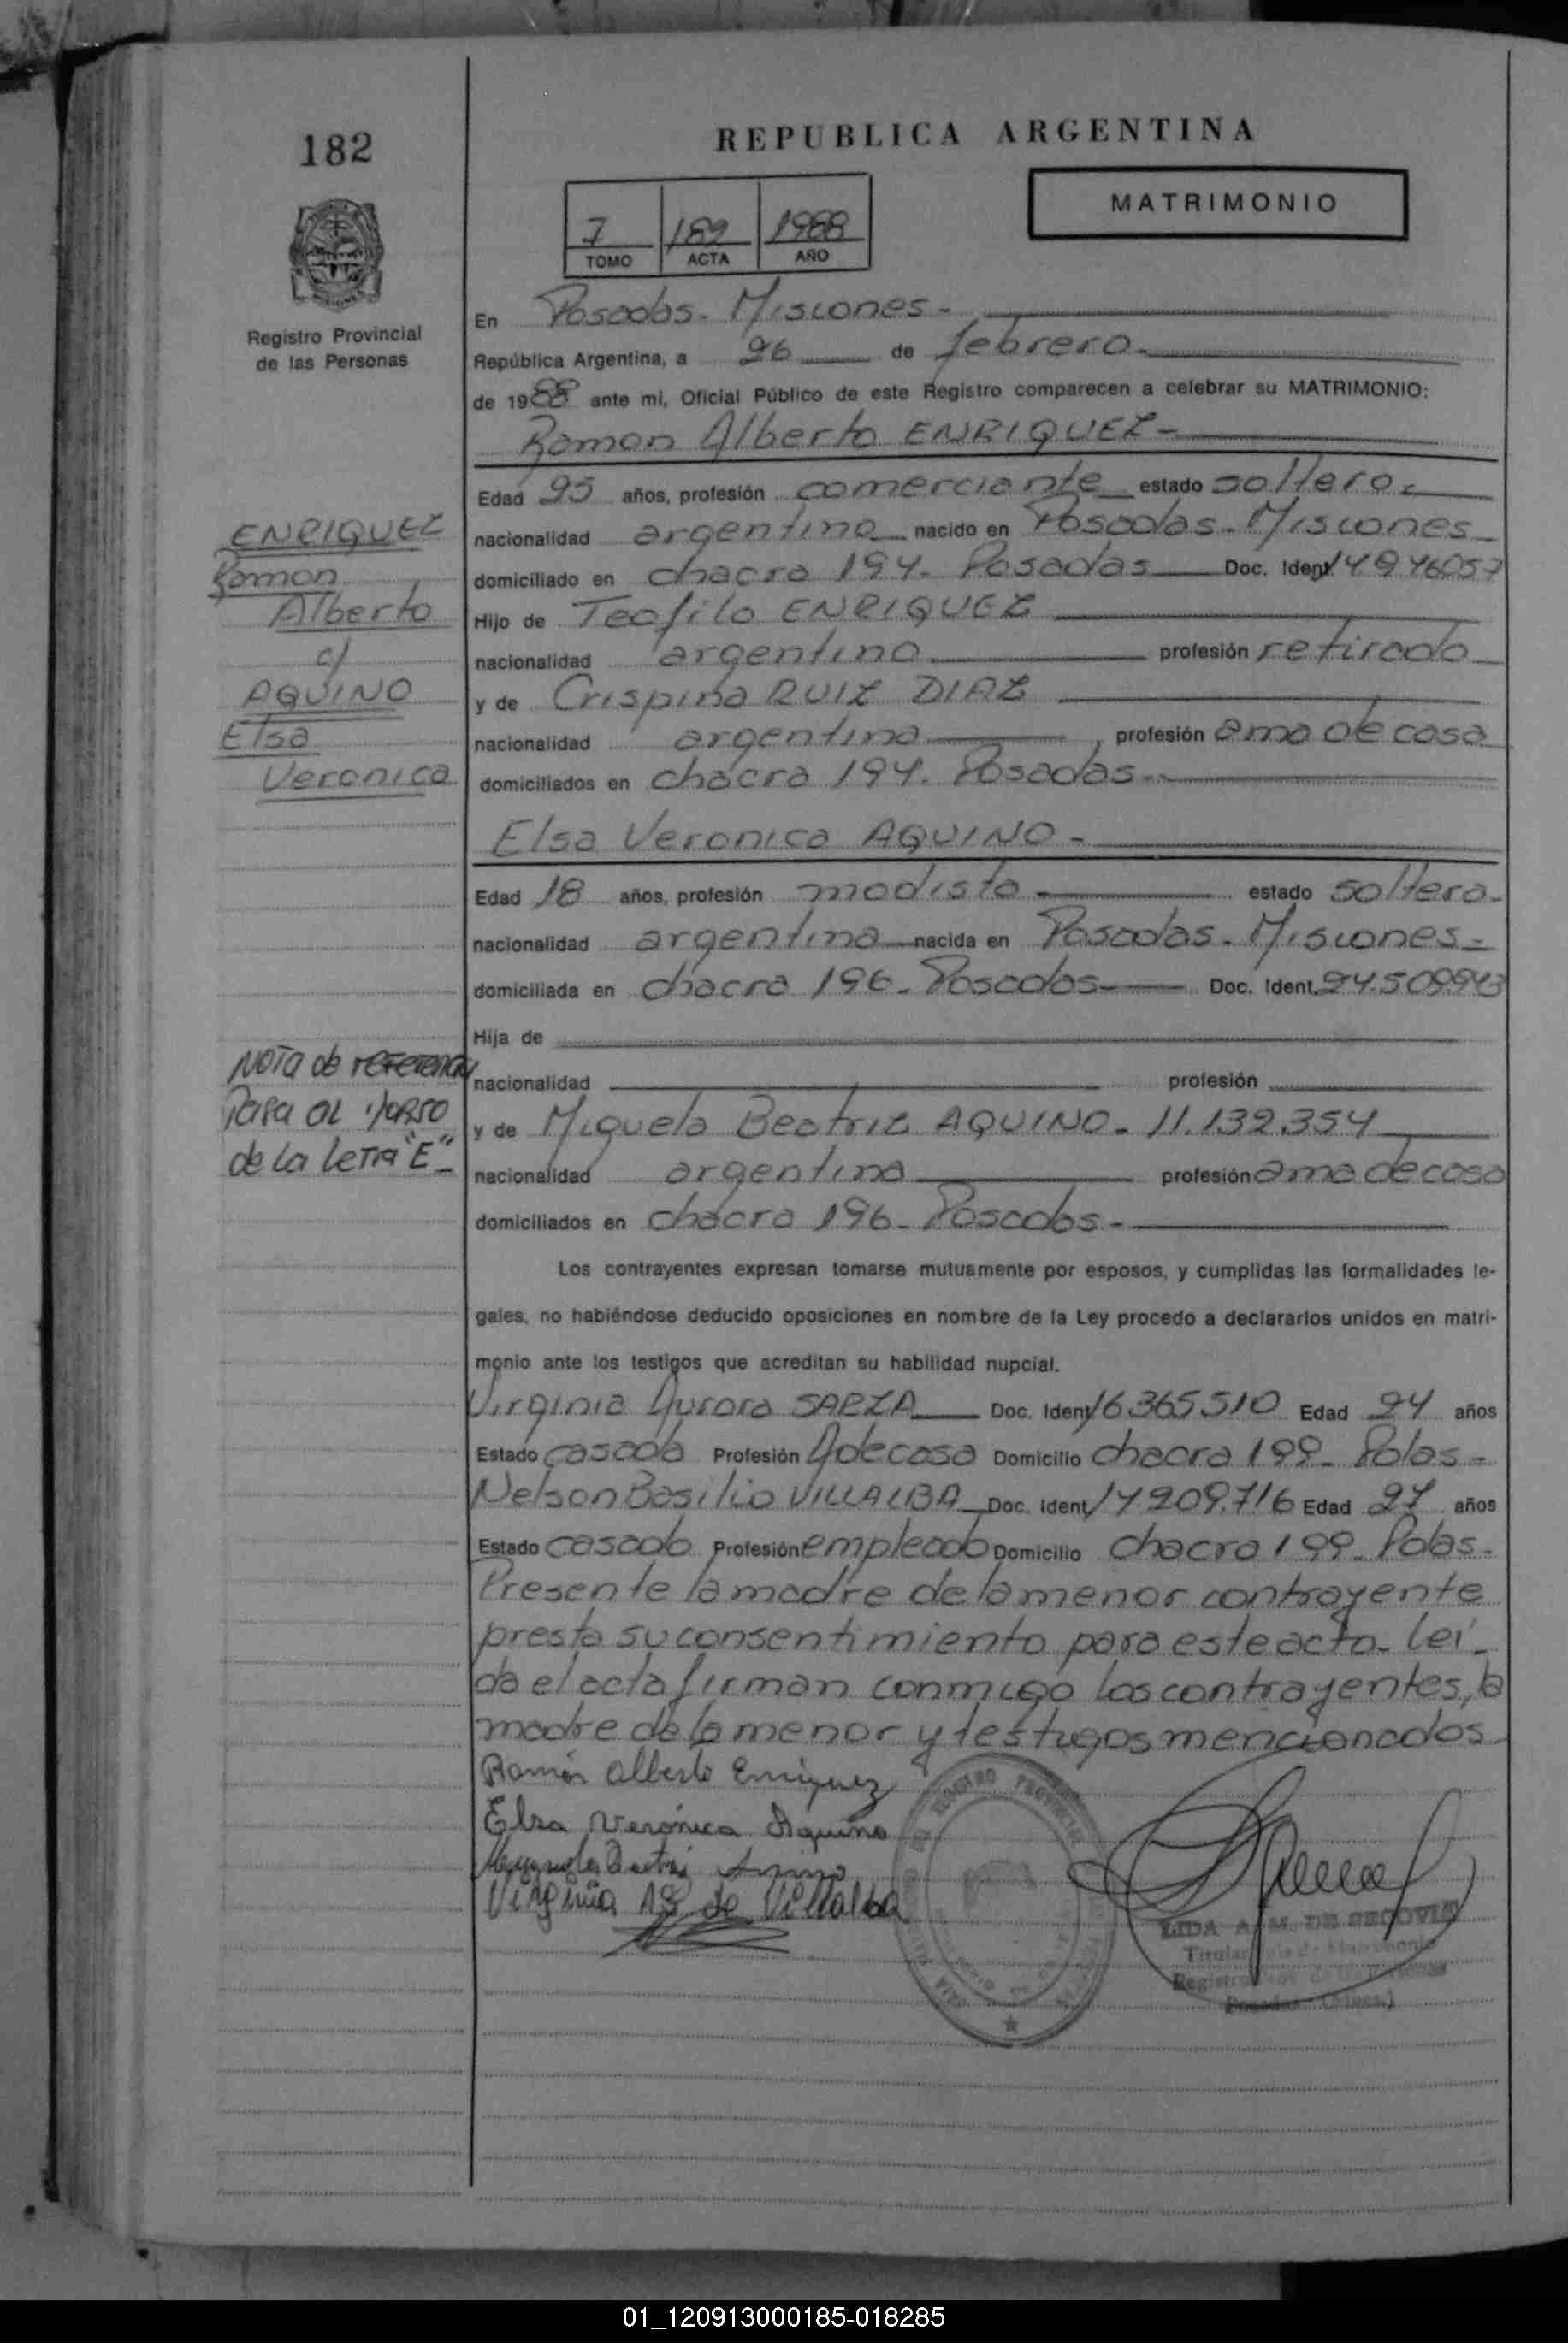 182
REPUBLICA ARGENTINA
MATRIMONIO
7 189 1988
TOMO ACTA AÑO
Registro Provincial
de las Personas
En Posadas - Misiones -
República Argentina, a 26 de febrero.
de 1988 ante mi, Oficial Público de este Registro comparecen a celebrar su MATRIMONIO:
Ramon Alberto ENRIQUEZ -
Edad 25 años, profesión comerciante estado soltero.
ENRIQUEZ
Ramon
Alberto
c/
AQUINO
Elsa
Veronica
nacionalidad argentina nacido en Posadas - Misiones
domiciliado en chacra 194. Posadas Doc. Ident. 14946057
Hijo de Teofilo ENRIQUEZ
nacionalidad argentina profesión retirado
y de Crispina RUIZ DIAZ
nacionalidad argentina profesión ama de casa
domiciliados en chacra 194. Posadas -
Elsa Veronica AQUINO -
Edad 18 años, profesión modista estado soltera -
nacionalidad argentina nacida en Posadas - Misiones -
domiciliada en chacra 196 - Posadas Doc. Ident. 24.509943
Hija de
nacionalidad profesión
NOTA de referencia
Pasa al Dorso
de la Letra "E" -
y de Miguela Beatriz AQUINO - 11.132.354
nacionalidad argentina profesión ama de casa
domiciliados en chacra 196 - Posadas -
Los contrayentes expresan tomarse mutuamente por esposos, y cumplidas las formalidades le-
gales, no habiéndose deducido oposiciones en nombre de la Ley procedo a declararlos unidos en matri-
monio ante los testigos que acreditan su habilidad nupcial.
Virginia Aurora SARZA Doc. Ident. 16365510 Edad 24 años
Estado casada Profesión A de casa Domicilio chacra 199 - Pdas -
Nelson Basilio VILLALBA Doc. Ident. 14.209.716 Edad 27 años
Estado casado Profesión empleado Domicilio chacra 199 - Pdas -
Presente la madre de la menor contrayente
presta su consentimiento para este acto - Leí-
da el acta firman conmigo los contrayentes, la
madre de la menor y testigos mencionados
Ramón Alberto Enriquez
Elsa Verónica Aquino
Virginia A S de Villalba
LIDA A. M. DE SEGOVIA
Posadas (Mnes.)
01_120913000185-018285